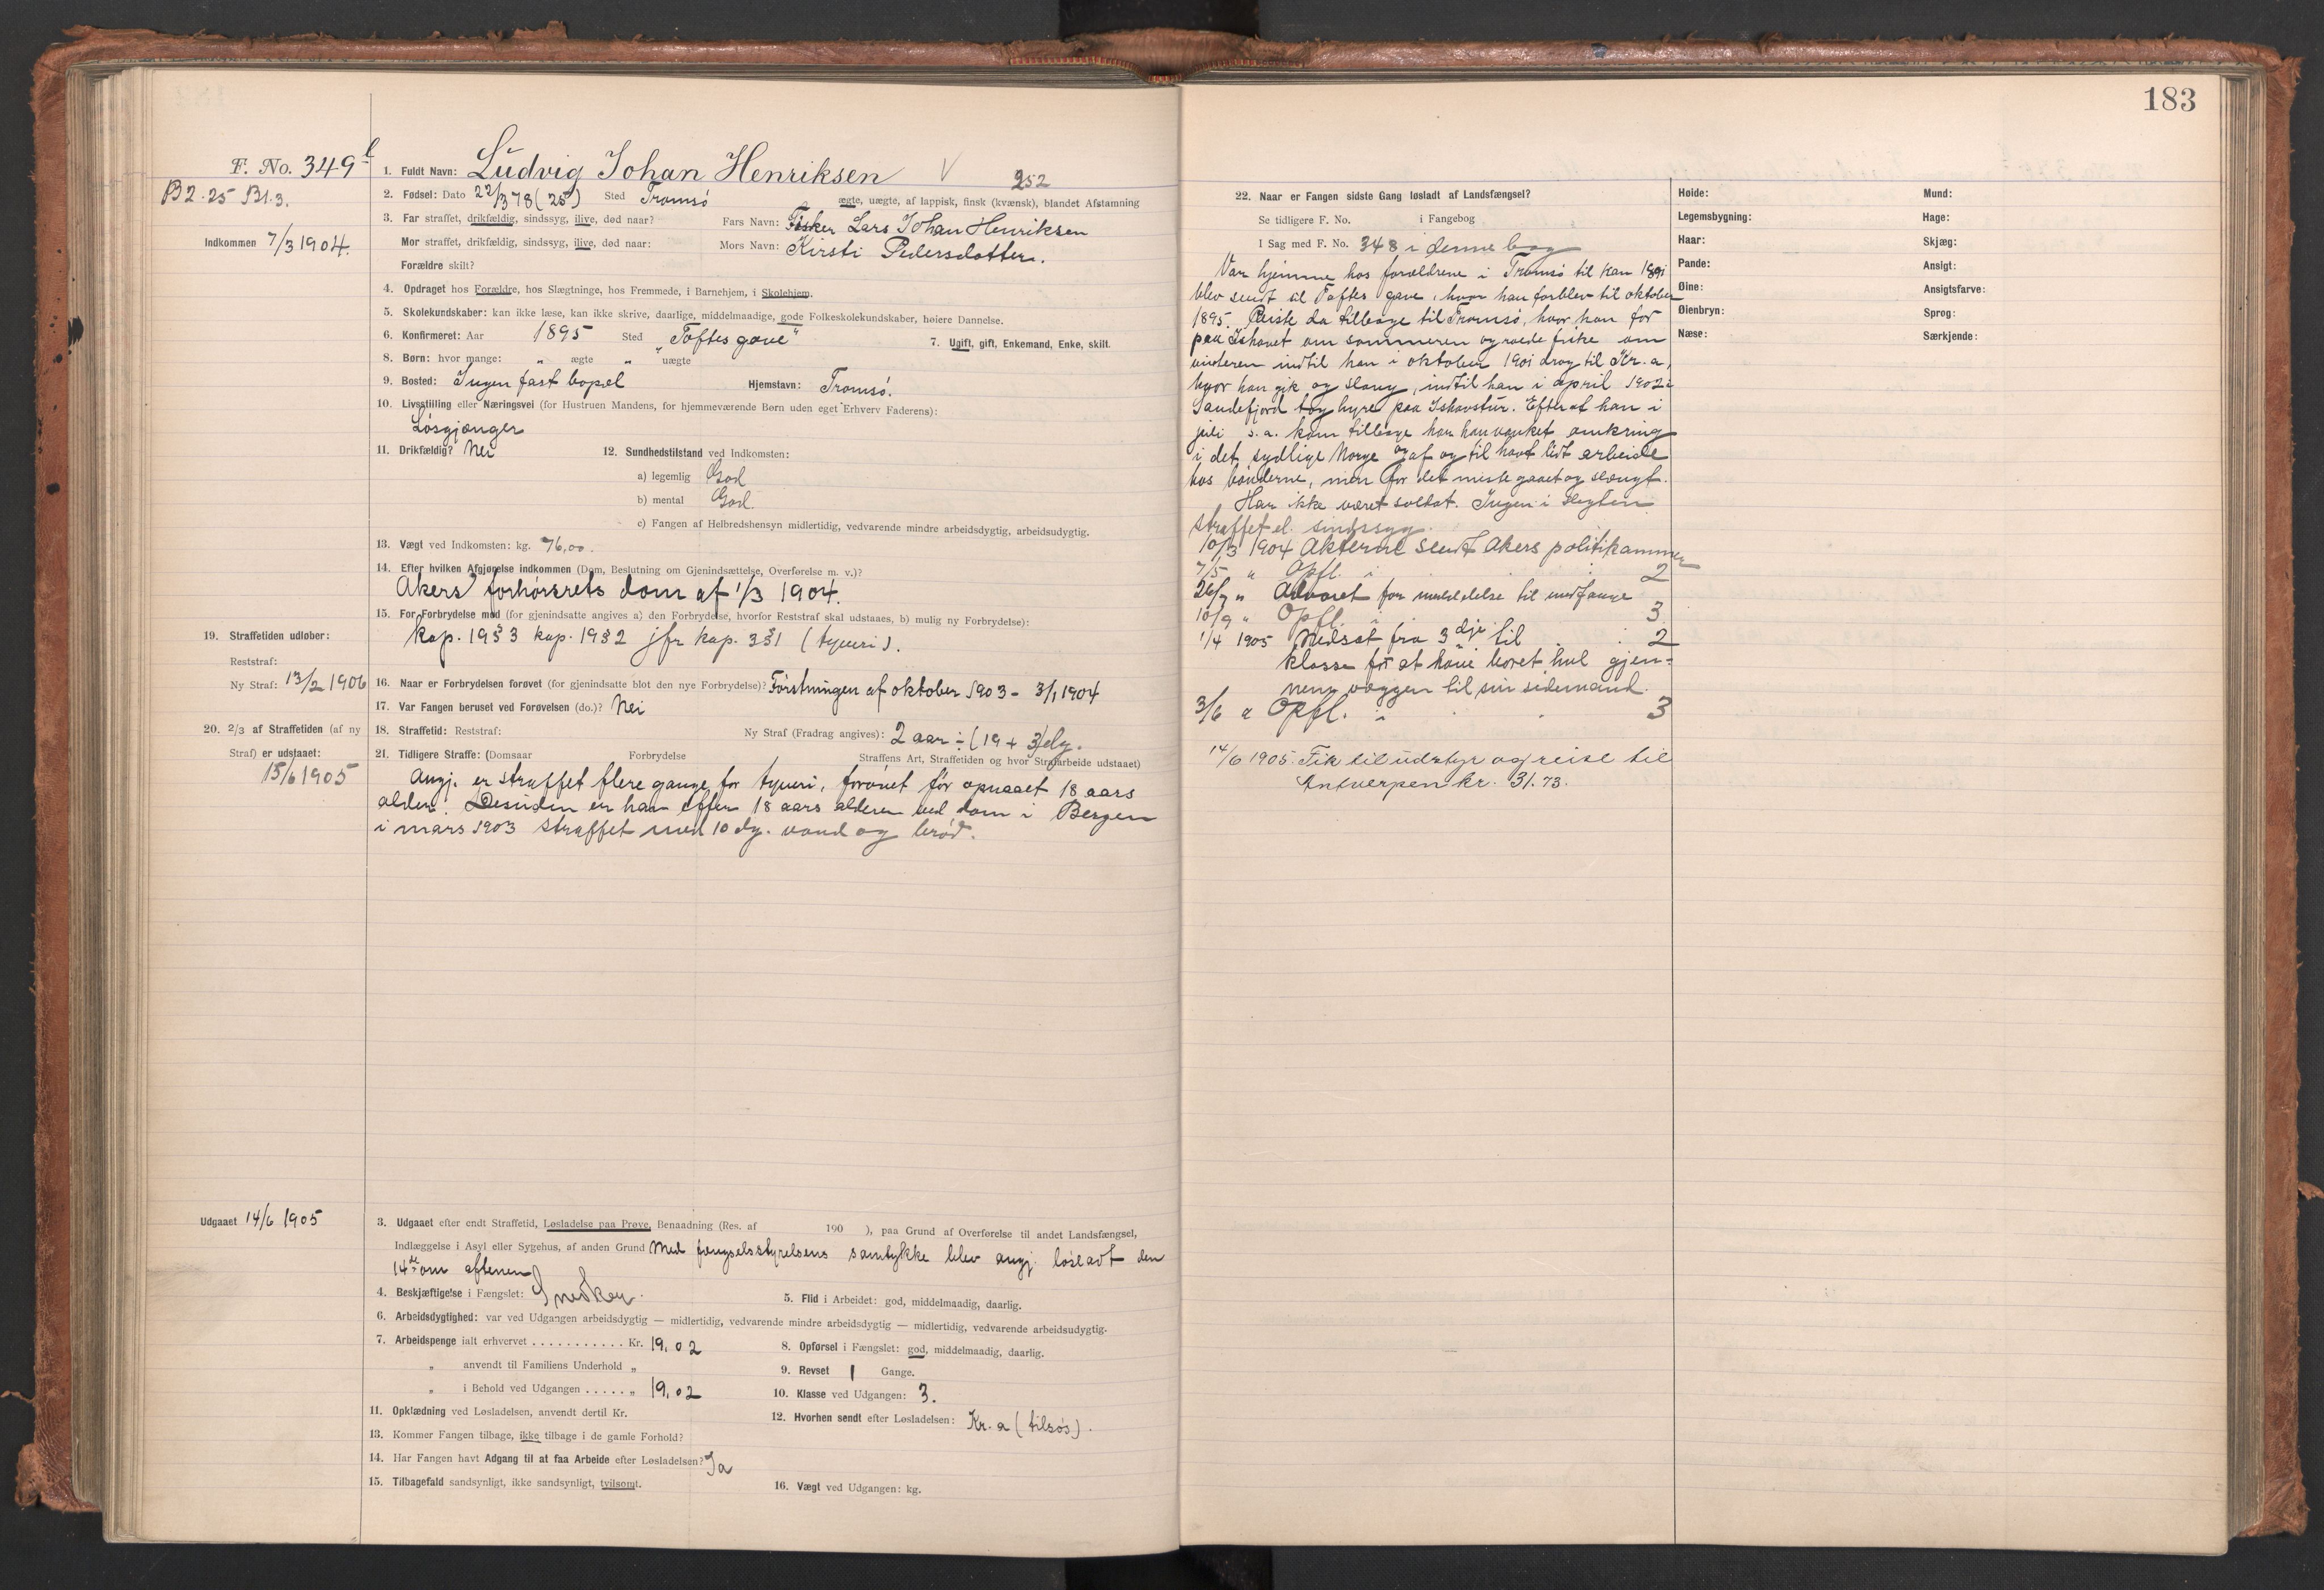 183
F. No. 349
B2. 25 Bl. 3.
Indkommen 7/3 1904.
1. Fuldt Navn: Ludvig Johan Henriksen V
252
2. Fødsel: Dato 22/3 78 (25) Sted Tromsø ægte, uægte, af lappisk, finsk (kvænsk), blandet Afstamning
3. Far straffet, drikfældig, sindssyg, ilive, død naar? Fars Navn: Fisker Lars Johan Henriksen
Mor straffet, drikfældig, sindssyg, ilive, død naar: Mors Navn: Kirsti Pedersdatter.
Forældre skilt?
4. Opdraget hos Forældre, hos Slægtninge, hos Fremmede, i Barnehjem, i Skolehjem.
5. Skolekundskaber: kan ikke læse, kan ikke skrive, daarlige, middelmaadige, gode Folkeskolekundskaber, høiere Dannelse.
6. Konfirmeret: Aar 1895 Sted „Toftes gave"
7. Ugift, gift, Enkemand, Enke, skilt.
8. Børn: hvor mange: „ ægte „ „ uægte
9. Bosted: Ingen fast bopæl Hjemstavn: Tromsø.
10. Livsstilling eller Næringsvei (for Hustruen Mandens, for hjemmeværende Børn uden eget Erhverv Faderens):
Løsgjænger
11. Drikfældig? Nei 12. Sundhedstilstand ved Indkomsten:
a) legemlig God
b) mental God.
c) Fangen af Helbredshensyn midlertidig, vedvarende mindre arbeidsdygtig, arbeidsudygtig.
13. Vægt ved Indkomsten: kg. 76,00.
14. Efter hvilken Afgjørelse indkommen (Dom, Beslutning om Gjenindsættelse, Overførelse m. v.)?
Akers forhørsrets dom af 1/3 1904.
15. For Forbrydelse mod (for gjenindsatte angives a) den Forbrydelse, hvorfor Reststraf skal udstaaes, b) mulig ny Forbrydelse):
Kap. 19 § 3 kap. 19 § 2 jfr kap. 3 § 1 (tyveri).
19. Straffetiden udløber:
Reststraf:
Ny Straf: 13/2 1906
16. Naar er Forbrydelsen forøvet (for gjenindsatte blot den nye Forbrydelse)? Førstningen af oktober 1903 - 3/1 1904
17. Var Fangen beruset ved Forøvelsen (do.)? Nei
20. 2/3 af Straffetiden (af ny Straf) er udstaaet:
15/6 1905
18. Straffetid: Reststraf: Ny Straf (Fradrag angives): 2 aar ÷ (19 + 3) dg.
21. Tidligere Straffe: (Domsaar Forbrydelse Straffens Art, Straffetiden og hvor Strafarbeide udstaaet)
Angj. er straffet flere gange for tyveri, forøvet før opnaaet 18 aars
alder. Desuden er han efter 18 aars alderen ved dom i Bergen
i mars 1903 straffet med 10 dg. vand og brød.
Udgaaet 14/6 1905
3. Udgaaet efter endt Straffetid, Løsladelse paa Prøve, Benaadning (Res. af 190 ), paa Grund af Overførelse til andet Landsfængsel,
Indlæggelse i Asyl eller Sygehus, af anden Grund Med fængselsstyrelsens samtykke blev angj. løsladt den
14de om aftenen
4. Beskjæftigelse i Fængslet: Snedker. 5. Flid i Arbeidet: god, middelmaadig, daarlig.
6. Arbeidsdygtighed: var ved Udgangen arbeidsdygtig — midlertidig, vedvarende mindre arbeidsdygtig — midlertidig, vedvarende arbeidsudygtig.
7. Arbeidspenge ialt erhvervet . . . . . . . . . . . Kr. 19,02 8. Opførsel i Fængslet: god, middelmaadig, daarlig.
„ anvendt til Familiens Underhold „ 9. Revset 1 Gange.
„ i Behold ved Udgangen . . . . . „ 19,02 10. Klasse ved Udgangen: 3.
11. Opklædning ved Løsladelsen, anvendt dertil Kr. 12. Hvorhen sendt efter Løsladelsen: Kr.a (tilsøs).
13. Kommer Fangen tilbage, ikke tilbage i de gamle Forhold?
14. Har Fangen havt Adgang til at faa Arbeide efter Løsladelsen? Ja
15. Tilbagefald sandsynligt, ikke sandsynligt, tvilsomt. 16. Vægt ved Udgangen: kg.
22. Naar er Fangen sidste Gang løsladt af Landsfængsel?
Se tidligere F. No. i Fangebog
I Sag med F. No. 348 i denne bog
Var hjemme hos forældrene i Tromsø til han 1891
blev sendt til Toftes gave, hvor han forblev til oktober
1895. Reiste da tilbage til Tromsø, hvor han for
paa Ishavet om sommeren og roede fiske om
vinteren indtil han i oktober 1901 drog til Kr.a,
hvor han gik og slang, indtil han i april 1902 i
Sandefjord tog hyre paa Ishavstur. Efterat han i
juli s.a. kom tilbage har han vanket omkring
i det sydlige Norge og af og til havt lidt arbeide
hos bønderne, men for det meste gaaet og slængt.
Har ikke været soldat. Ingen i slegten
straffet el. sindssyg.
10/3 1904 Akterne sendt Akers politikammer
7/5 „ Opfl. i 2
26/7 „ Advaret for meddelelse til medfange
10/9 „ Opfl. i 3
1/4 1905 Nedsat fra 3dje til 2
klasse for at have boret hul gjen-
nem væggen til sin sidemand.
3/6 „ Opfl. i 3
14/6 1905. Fik til udstyr og reise til
Antwerpen kr. 31.73.
Høide:
Legemsbygning:
Haar:
Pande:
Øine:
Øienbryn:
Næse:
Mund:
Hage:
Skjæg:
Ansigt:
Ansigtsfarve:
Sprog:
Særkjende: